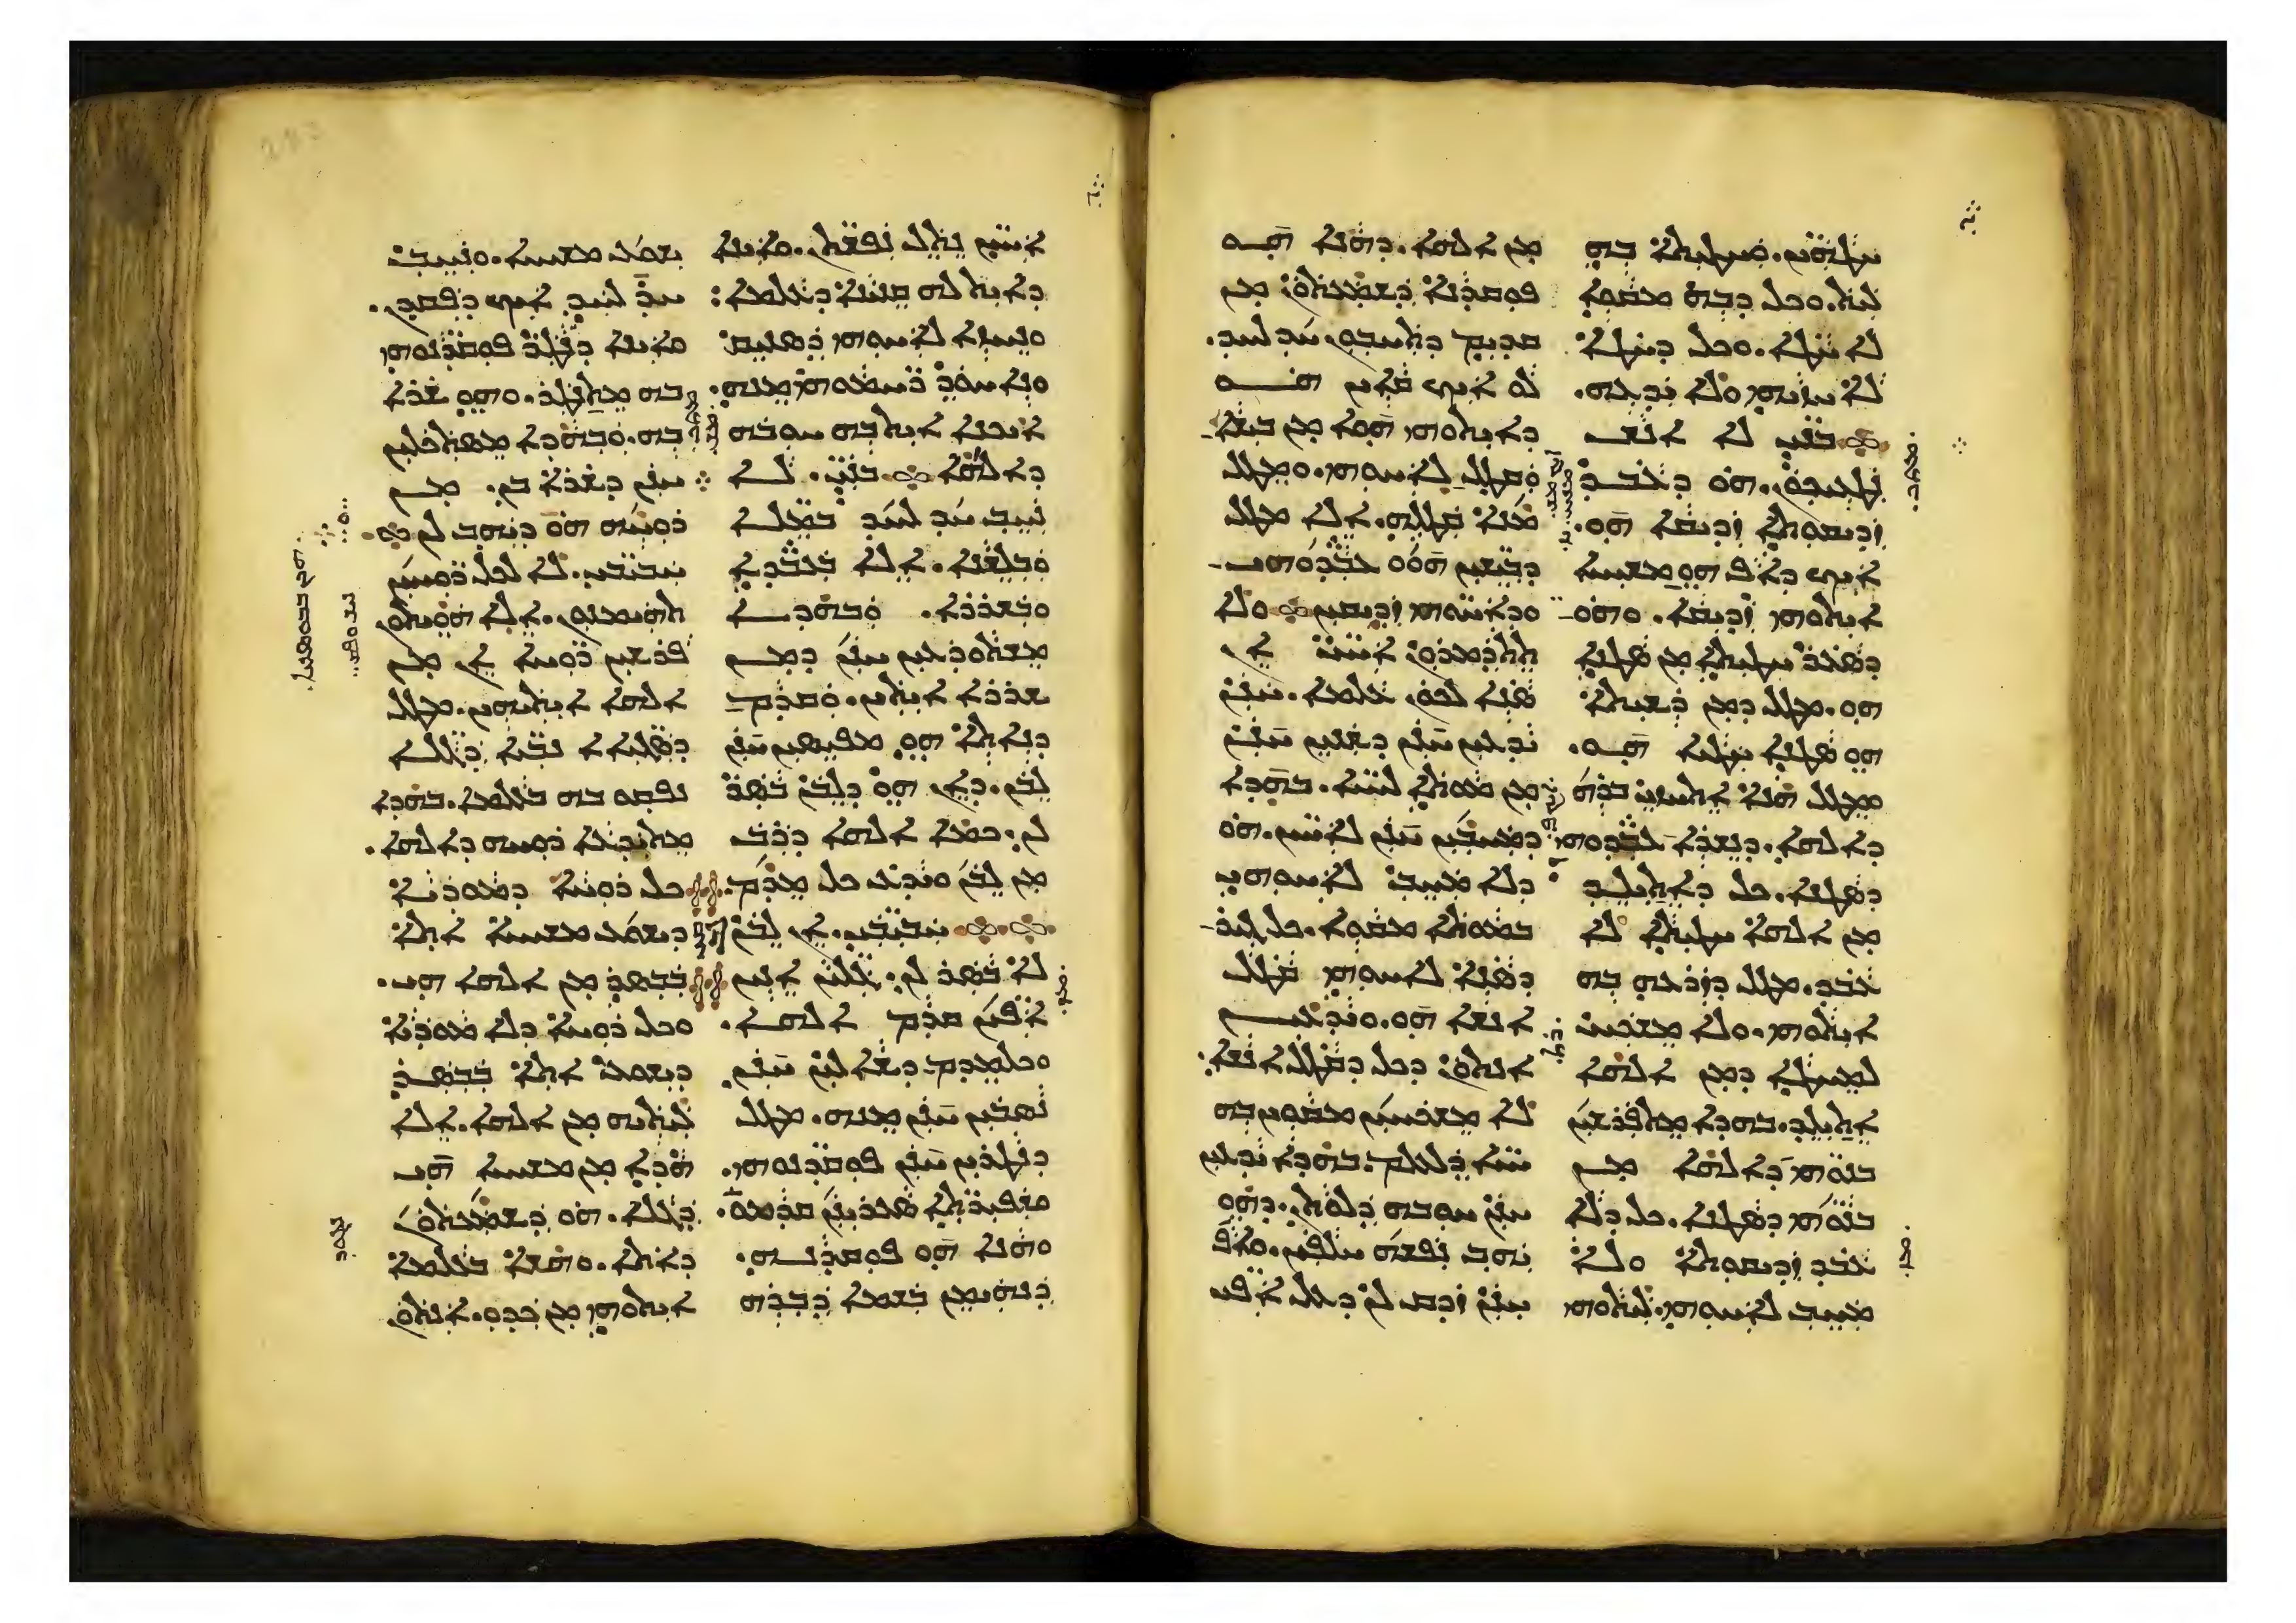 ܚܛܗܝܢ. ܘܚܛܝܬܐ ܒܗ
ܠܝܬ. ܘܟܠ ܕܒܗ ܡܩܘܐ
ܠܐ ܚܛܐ. ܘܟܠ ܕܚܛܐ
ܠܐ ܚܙܝܗܝ ܘܠܐ ܝܕܥܗ.
ܒܢܝ ܠܐ ܐܢܫ
ܢܛܥܝܟܘܢ. ܗܘ ܕܥܒܕ
ܙܕܝܩܘܬܐ ܙܕܝܩܐ ܗܘ.
ܐܝܟ ܕܐܦ ܗܘ ܡܫܝܚܐ
ܐܝܬܘܗܝ ܙܕܝܩܐ. ܘܗܘ
ܕܣܥܪ ܚܛܝܬܐ ܡܢ ܣܛܢܐ
ܗܘ. ܡܛܠ ܕܡܢ ܪܫܝܬܐ
ܗܘ ܣܛܢܐ ܚܛܝܐ ܗܘ.
ܘܡܛܠ ܗܢܐ ܐܬܚܙܝ ܒܪܗ
ܕܐܠܗܐ. ܕܢܫܪܐ ܥܒܕܘܗܝ
ܕܣܛܢܐ. ܟܠ ܕܐܬܝܠܕ
ܡܢ ܐܠܗܐ ܚܛܝܬܐ ܠܐ
ܥܒܕ. ܡܛܠ ܕܙܪܥܗ ܒܗ
ܐܝܬܘܗܝ. ܘܠܐ ܡܫܟܚ
ܠܡܚܛܐ ܕܡܢ ܐܠܗܐ
ܐܬܝܠܕ. ܒܗܕܐ ܡܬܦܪܫܝܢ
ܒܢܘܗܝ ܕܐܠܗܐ ܡܢ
ܒܢܘܗܝ ܕܣܛܢܐ. ܟܠ ܕܠܐ
ܥܒܕ ܙܕܝܩܘܬܐ ܘܠܐ
ܡܚܒ ܠܐܚܘܗܝ. ܠܝܬܘܗܝ
ܡܢ ܐܠܗܐ. ܕܗܢܐ ܗܘ
ܦܘܩܕܢܐ ܕܫܡܥܬܘܢ ܡܢ
ܩܕܝܡ ܕܬܚܒܘܢ ܚܕ ܠܚܕ.
ܠܘ ܐܝܟ ܩܐܝܢ ܗܘ
ܕܐܝܬܘܗܝ ܗܘܐ ܡܢ ܒܝܫܐ
ܘܩܛܠ ܠܐܚܘܗܝ. ܘܡܛܠ
ܡܢܐ ܩܛܠܗ. ܐܠܐ ܡܛܠ
ܕܒܝܫܝܢ ܗܘܘ ܥܒܕܘܗܝ
ܘܕܐܚܘܗܝ ܙܕܝܩܝܢ ܘܠܐ
ܬܬܕܡܪܘܢ ܐܚܝ ܐܢ
ܣܢܐ ܠܟܘܢ ܥܠܡܐ. ܚܢܢ
ܝܕܥܝܢ ܚܢܢ ܕܫܢܝܢ ܚܢܢ
ܡܢ ܡܘܬܐ ܠܚܝܐ. ܒܗܕܐ
ܕܡܚܒܝܢ ܚܢܢ ܠܐܚܝܢ. ܗܘ
ܕܠܐ ܡܚܒ ܠܐܚܘܗܝ
ܒܡܘܬܐ ܡܩܘܐ. ܟܠ ܓܝܪ
ܕܣܢܐ ܠܐܚܘܗܝ ܩܛܠ
ܐܢܫܐ ܗܘ. ܘܝܕܥܝܢ
ܐܢܬܘܢ ܕܟܠ ܕܩܛܠ ܐܢܫܐ
ܠܐ ܡܫܟܚܝܢ ܡܩܘܝܢ ܒܗ
ܚܝܐ ܕܠܥܠܡ. ܒܗܕܐ ܝܕܥܝܢ
ܚܢܢ ܚܘܒܗ ܕܠܘܬܢ. ܕܗܘ
ܝܗܒ ܢܦܫܗ ܚܠܦܝܢ. ܘܐܦ
ܚܢܢ ܙܕܩ ܠܢ ܕܥܠ ܐܦܝ
ܐܚܝܢ ܢܬܠ ܢܦܫܬܢ. ܘܐܝܢܐ
ܕܐܝܬ ܠܗ ܩܢܝܢܐ ܕܥܠܡܐ
ܘܢܚܙܐ ܠܐܚܘܗܝ ܕܣܢܝܩ
ܘܢܐܚܘܕ ܪܚܡܘܗܝ ܡܢܗ.
ܐܝܟܢܐ ܐܝܬ ܒܗ ܚܘܒܗ
ܕܐܠܗܐ ܒܢܝ. ܠܐ
ܢܚܒ ܚܕ ܠܚܕ ܒܡܠܐ
ܘܒܠܫܢܐ. ܐܠܐ ܒܥܒܕܐ
ܘܒܫܪܪܐ. ܘܒܗܕܐ
ܡܫܬܘܕܥܝܢ ܚܢܢ ܕܡܢ
ܫܪܪܐ ܐܝܬܝܢ. ܘܩܕܡ
ܕܢܐܬܐ ܗܘ ܡܦܝܣܝܢ ܚܢܢ
ܠܒܢ. ܕܐܢ ܗܘ ܕܠܒܢ ܒܣܪ
ܠܢ. ܟܡܐ ܐܠܗܐ ܕܪܒ
ܡܢ ܠܒܢ ܘܝܕܥ ܟܠ ܡܕܡ.
ܚܒܝܒܝ. ܐܢ ܠܒܢ
ܠܐ ܒܣܪ ܠܢ. ܓܠܝܢ ܐܢܝܢ
ܐܦܝܢ ܩܕܡ ܐܠܗܐ.
ܘܟܠܡܕܡ ܕܫܐܠܝܢ ܚܢܢ
ܢܣܒܝܢ ܚܢܢ ܡܢܗ. ܡܛܠ
ܕܢܛܪܝܢ ܚܢܢ ܦܘܩܕܢܘܗܝ.
ܘܫܦܝܪܬܐ ܣܥܪܝܢܢ
ܘܗܢܐ ܗܘ ܦܘܩܕܢܗ.
ܕܢܗܝܡܢ ܒܫܡܐ ܕܒܪܗ
ܝܫܘܥ ܡܫܝܚܐ. ܘܢܚܒ
ܚܕ ܠܚܕ ܐܝܟ ܕܦܩܕܢ.
ܘܐܝܢܐ ܕܢܛܪ ܦܘܩܕܢܘܗܝ
ܒܗ ܡܬܢܛܪ. ܘܗܘ ܫܪܐ
ܒܗ. ܘܒܗܕܐ ܡܣܬܟܠܝܢ
ܚܢܢ ܕܫܪܐ ܒܢ. ܡܢ
ܪܘܚܗ ܗܘ ܕܝܗܒ ܠܢ
ܚܒܝܒܝ. ܠܐ ܠܟܠ ܪܘܚܝܢ
ܬܗܝܡܢܘܢ. ܐܠܐ ܗܘܝܬܘܢ
ܦܪܫܝܢ ܪܘܚܐ ܐܢ ܡܢ
ܐܠܗܐ ܐܝܬܝܗܝܢ. ܡܛܠ
ܕܣܓܝܐܐ ܢܒܝܐ ܕܓܠܐ
ܢܦܩܘ ܒܗ ܒܥܠܡܐ. ܒܗܕܐ
ܡܬܝܕܥܐ ܪܘܚܗ ܕܐܠܗܐ.
ܟܠ ܪܘܚܐ ܕܡܘܕܝܐ
ܕܝܫܘܥ ܡܫܝܚܐ ܐܬܐ
ܒܒܣܪ ܡܢ ܐܠܗܐ ܗܝ.
ܘܟܠ ܪܘܚܐ ܕܠܐ ܡܘܕܝܐ
ܕܝܫܘܥ ܐܬܐ ܒܒܣܪ
ܠܝܬܝܗ ܡܢ ܐܠܗܐ. ܐܠܐ
ܗܕܐ ܡܢ ܡܫܝܚܐ ܗܝ
ܕܓܠܐ. ܗܘ ܕܫܡܥܬܘܢ
ܕܐܬܐ. ܘܗܫܐ ܒܥܠܡܐ
ܐܝܬܘܗܝ ܡܢ ܟܕܘ. ܐܢܬܘܢ